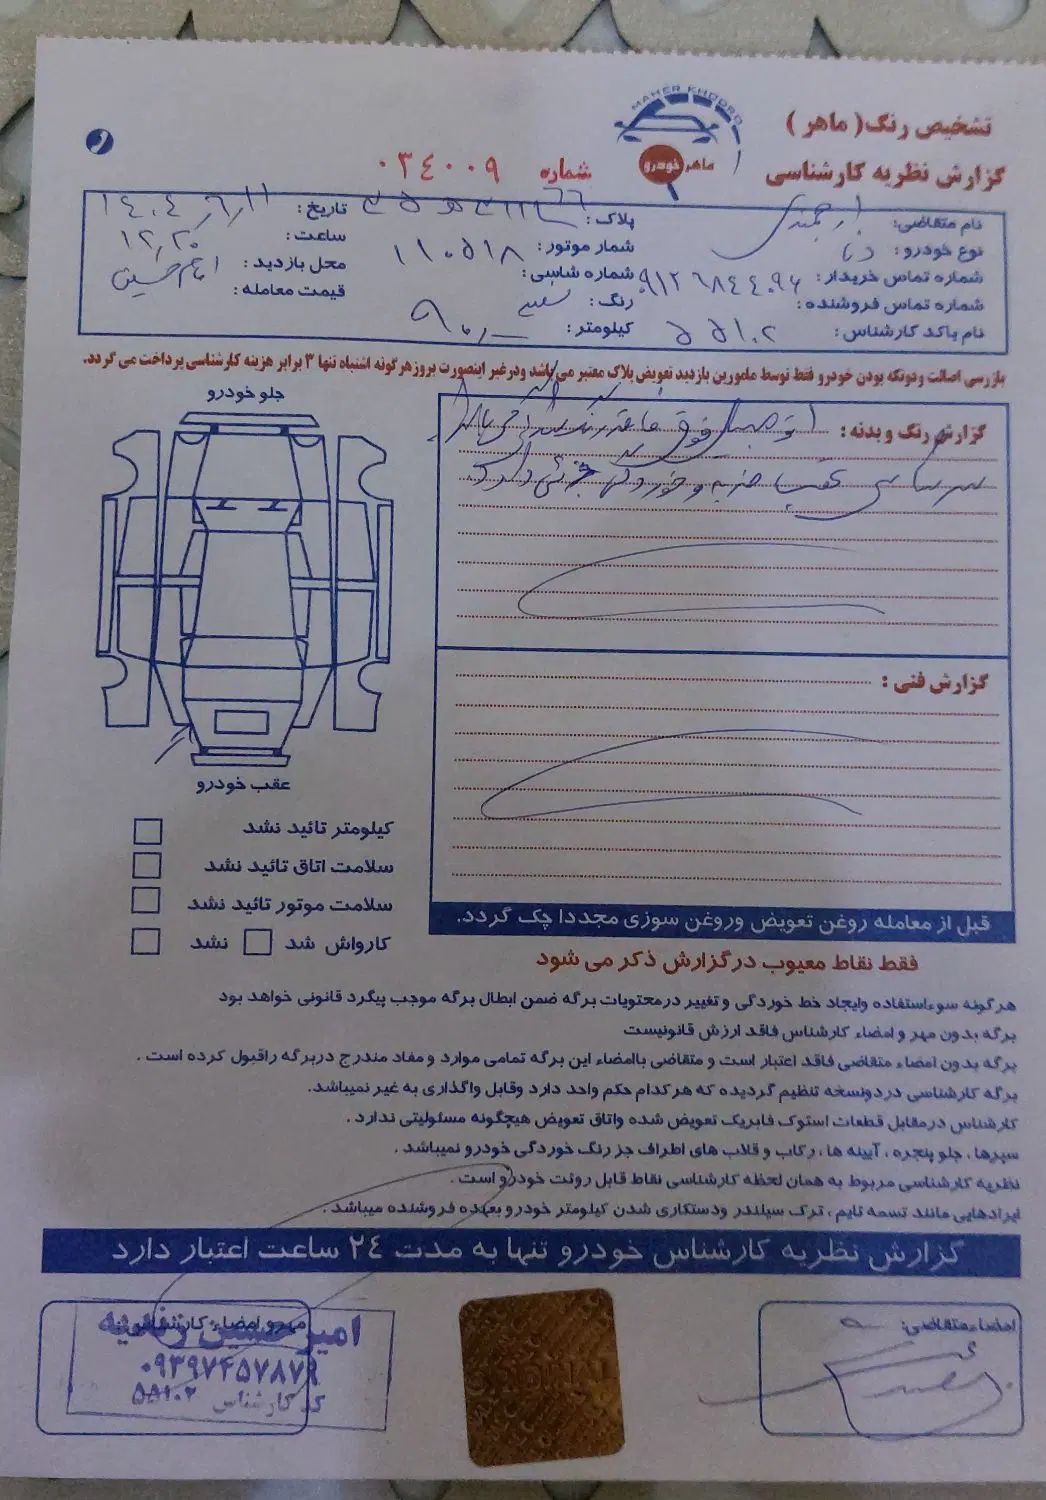 MAHER KHODRO
ماهر خودرو
تشخیص رنگ( ماهر )
گزارش نظریه کارشناسی
شماره ۰۳۴۰۰۹
نام متقاضی: ارجمندی
نوع خودرو: دنا
شماره تماس خریدار: ۰۹۱۲۶۸۴۴۰۹۶
شماره تماس فروشنده:
نام یاکد کارشناس: ۵۵۱۰۲
پلاک:
شمار موتور: ۱۱۰۵۱۸
شماره شاسی:
رنگ: سفید
کیلومتر:
تاریخ: ۱۴۰۴/۶/۱۱
ساعت: ۱۲/۲۰
محل بازدید: امام حسین
قیمت معامله:
بازرسی اصالت ودوتکه بودن خودرو فقط توسط مامورین بازدید تعویض پلاک معتبر می باشد ودرغیر اینصورت بروزهرگونه اشتباه تنها ۳ برابر هزینه کارشناسی پرداخت می گردد.
جلو خودرو
عقب خودرو
گزارش رنگ و بدنه: اتومبیل فوق فاقد رنگ می باشد
سرشاسی عقب ضربه و خوردگی جزئی دارد
گزارش فنی :
کیلومتر تائید نشد
سلامت اتاق تائید نشد
سلامت موتور تائید نشد
کارواش شد نشد
قبل از معامله روغن تعویض وروغن سوزی مجددا چک گردد.
فقط نقاط معیوب درگزارش ذکر می شود
هرگونه سوءاستفاده وایجاد خط خوردگی و تغییر درمحتویات برگه ضمن ابطال برگه موجب پیگرد قانونی خواهد بود
برگه بدون مهر و امضاء کارشناس فاقد ارزش قانونیست
برگه بدون امضاء متقاضی فاقد اعتبار است و متقاضی باامضاء این برگه تمامی موارد و مفاد مندرج دربرگه راقبول کرده است .
برگه کارشناسی دردونسخه تنظیم گردیده که هرکدام حکم واحد دارد وقابل واگذاری به غیر نمیباشد.
کارشناس درمقابل قطعات استوک فابریک تعویض شده واتاق تعویض هیچگونه مسئولیتی ندارد .
سپرها ، جلو پنجره ، آیینه ها ، رکاب و قلاب های اطراف جز رنگ خوردگی خودرو نمیباشد .
نظریه کارشناسی مربوط به همان لحظه کارشناسی نقاط قابل روئت خودرو است .
ایرادهایی مانند تسمه تایم ، ترک سیلندر ودستکاری شدن کیلومتر خودرو بعهده فروشنده میباشد .
گزارش نظریه کارشناس خودرو تنها به مدت ۲۴ ساعت اعتبار دارد
امضاء متقاضی:
مهر و امضاء کارشناس:
۰۹۳۹۷۴۵۷۸۷۹
کد کارشناس ۵۵۱۰۲